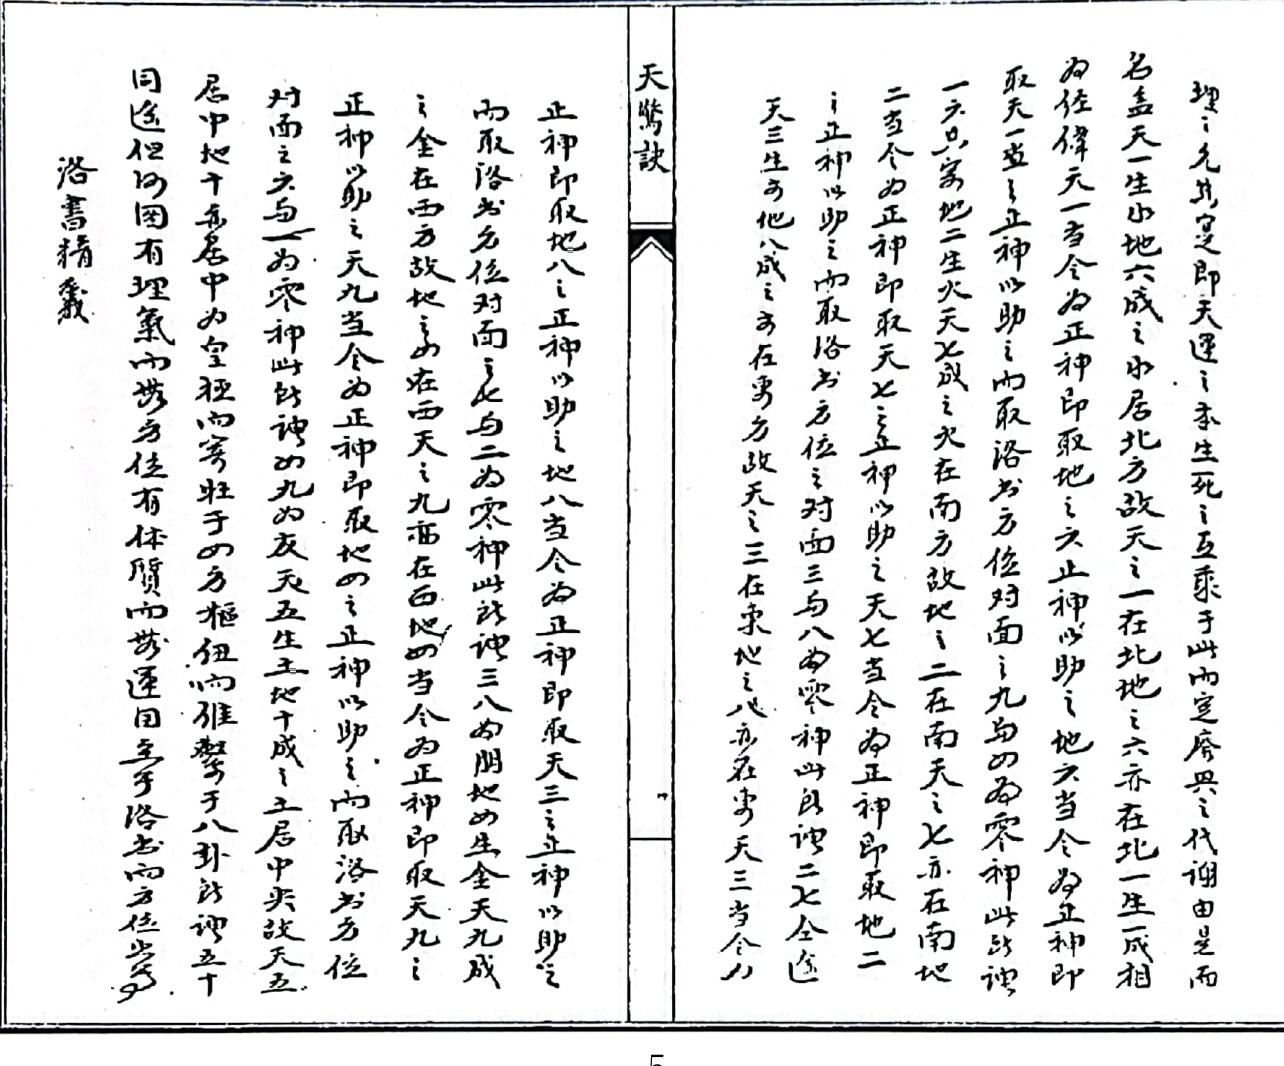 理之先其定即天運之本生死之互乘于此而定廢興之代謝由是而
名盖天一生水地六成之水居北方故天之一在北地之六亦在北一生一成相
为經緯天一当令为正神即取地之六正神以助之地六当令为正神即
取天一之正神以助之而取洛书方位对面之九与四为零神此所謂
一六共宗地二生火天七成之火在南方故地之二在南天之七亦在南地
二当令为正神即取天七之正神以助之天七当令为正神即取地二
之正神以助之而取洛书方位之对面三与八为零神此所謂二七仝途
天三生木地八成之木在東方故天之三在東地之八亦在東天三当令为
天驚訣
正神即取地八之正神以助之地八当令为正神即取天三之正神以助之
而取洛书方位对面之七与二为零神此所謂三八为朋地四生金天九成
之金在西方故地之四在西天之九亦在西地四当令为正神即取天九之
正神以助之天九当令为正神即取地四之正神以助之而取洛书方位
对面之六与一为零神此所謂四九为友天五生土地十成之土居中央故天五
居中地十亦居中为皇極而寄旺于四方樞纽而維繫于八卦所謂五十
同途但河图有理氣而無方位有体質而無運用至于洛书而方位
洛書精義
5